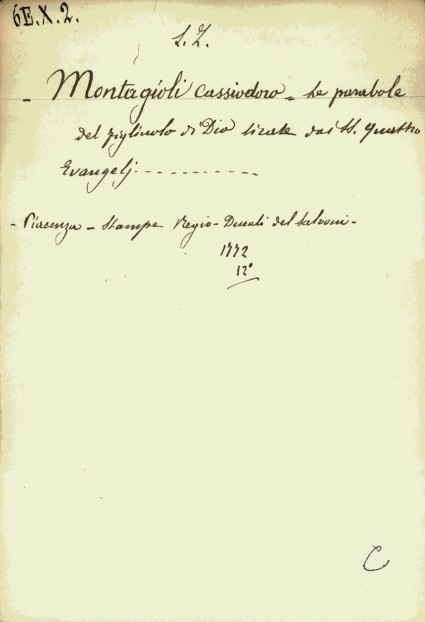 6E.X.2.
S.Z.
- Montagioli Cassiodoro - Le parabole
del figliuolo di Dio tirate dai SS. Quattro
Evangelj - - - - - - - - - -
- Piacenza - Stampe Regio-Ducali del Salvoni -
1772
12°
C